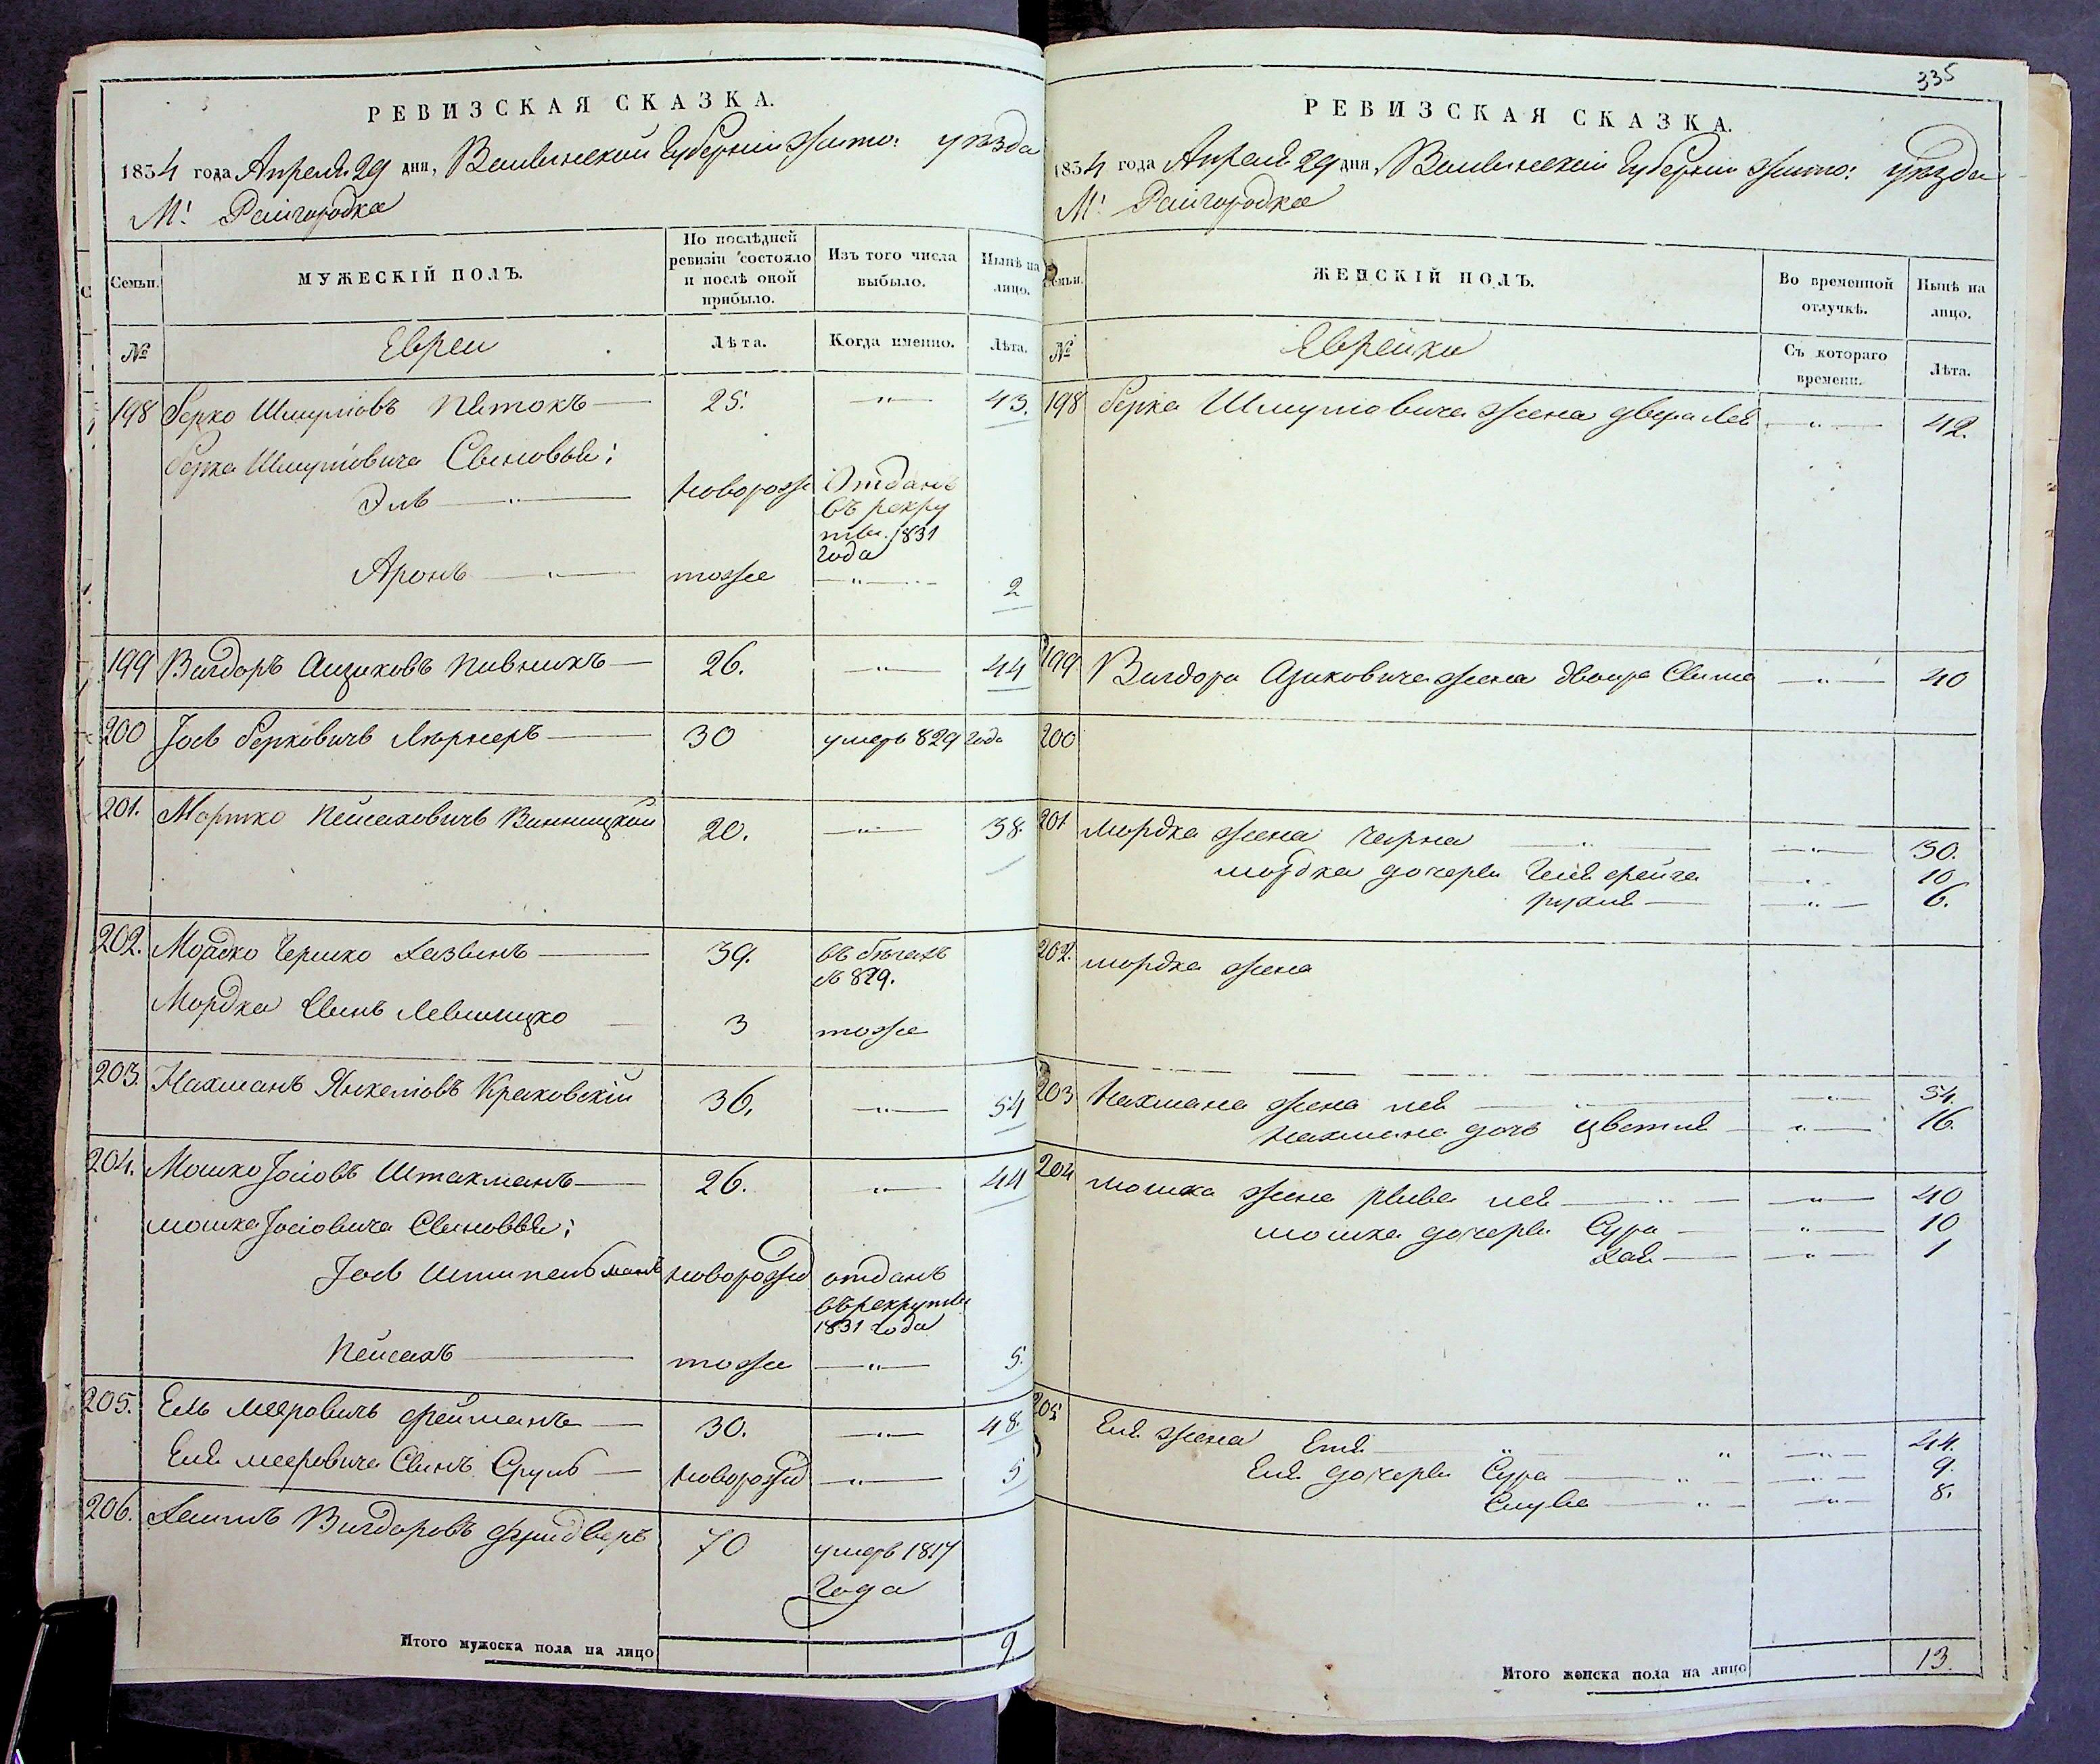 РЕВИЗСКАЯ СКАЗКА.
1834 года Апреля 29 дня, Волынской Губернии Жито: уезда
М: Райгородка
Семьи.
МУЖЕСКІЙ ПОЛЪ.
По послѣдней ревизіи состояло и послѣ оной прибыло.
Изъ того числа выбыло.
Нынѣ на лицо.
№
Евреи
Лѣта.
Когда именно.
Лѣта.
198 Берко Шмулювъ Пятокъ — 25. — " — 43.
Берка Шмулювича Сыновья:
Эль — " — новорож Отданъ
въ рекру
ты 1831
года
Аронъ — " — тоже — " — 2
199 Вигдоръ Аицыковъ Пивникъ — 26. — " — 44
200 Іось Берковичъ Лернеръ — 30 умеръ 829 года
201. Мортко Пейсаховичъ Винницкой 20. — " — 38.
202. Мордко Хазынъ — 39. въ бѣгахъ
с 829.
Мордка Сынъ 3 тоже
203. Нахманъ Янкелювъ Краковскій 36. — " — 54
204. Мошко Іосіовъ Штахманъ — 26. — " — 44
мошка Іосіовича Сыновья:
Іось новорожд отданъ
въ рекруты
1831 года
Пейсахъ — тоже — " — 5.
205. Ель Мееровичъ Фейманъ — 30. — " — 48.
Еля мееровича Сынъ Сруль — новорожд — " — 5
206. Хаимъ Вигдоровъ 70 умеръ 1817
года
Итого мужеска пола на лицо 9
335
РЕВИЗСКАЯ СКАЗКА.
1834 года Апреля 29 дня, Волынской Губернии Жито: уезда
М: Райгородка
Семьи.
ЖЕНСКІЙ ПОЛЪ.
Во временной отлучкѣ.
Нынѣ на лицо.
№
Еврейки
Съ котораго времени.
Лѣта.
198 Берка Шмулювича жена двера Лея — " — 42.
199 Вигдора Ацыковича жена двоира — " — 40
200
201 мордка жена Черна — " — 30.
мордка дочери фейга — " — 10
рухля — " — 6.
202. мордка жена
203 Нахмана жена лея — " — 54.
нахмана дочь цветля — " — 16.
204 мошка жена рыва лея — " — 40
мошка дочери Сура — " — 10
Хая — " — 1
205 Еля жена Етя — " — 44.
Еля дочери Сура — " — 9.
Слува — " — 8.
Итого женска пола на лицо 13.